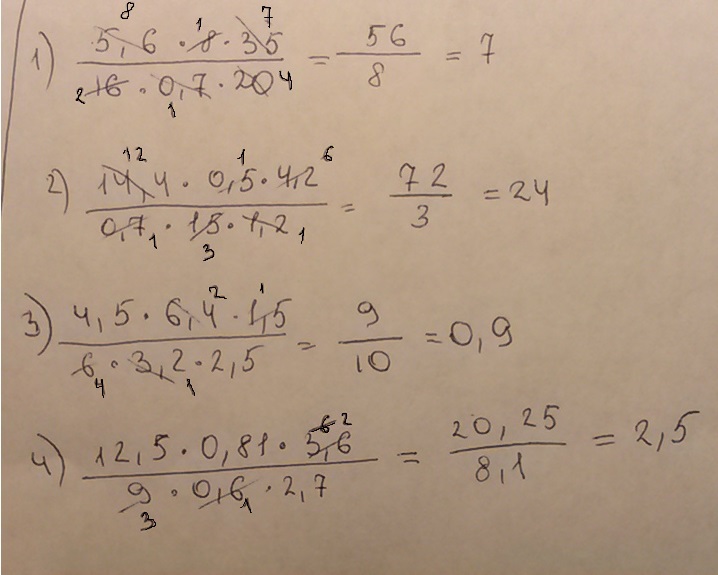 8 1 7
1) 5,6 · 8 · 35 / 16 · 0,7 · 20 = 56 / 8 = 7
2 1 4
12 1 6
2) 14,4 · 0,5 · 4,2 / 0,7 · 15 · 1,2 = 72 / 3 = 24
1 3 1
2 1
3) 4,5 · 6,4 · 1,5 / 6 · 3,2 · 2,5 = 9 / 10 = 0,9
4 1
6 2
4) 12,5 · 0,81 · 3,6 / 9 · 0,6 · 2,7 = 20,25 / 8,1 = 2,5
3 1